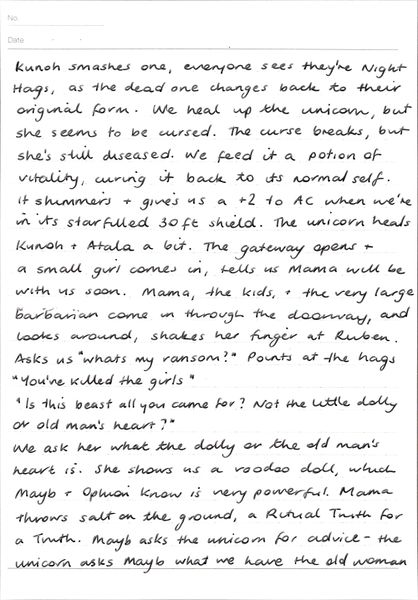 No.
Date
Kunoh smashes one, everyone sees they're Night
Hags, as the dead one changes back to their
original form. We heal up the unicorn, but
she seems to be cursed. The curse breaks, but
she's still diseased. We feed it a potion of
vitality, curing it back to its normal self.
It shimmers + gives us a +2 to AC when we're
in its starfilled 30ft shield. The unicorn heals
Kunoh + Atala a bit. The gateway opens +
a small girl comes in, tells us Mama will be
with us soon. Mama, the kids, + the very large
barbarian come in through the doorway, and
looks around, shakes her finger at Ruben.
Asks us "whats my ransom?" Points at the hags
"You've killed the girls"
"Is this beast all you came for? Not the little dolly
or old man's heart?"
We ask her what the dolly or the old man's
heart is. She shows us a voodoo doll, which
Mayb + Ophion know is very powerful. Mama
throws salt on the ground, a Ritual Truth for
a Truth. Mayb asks the unicorn for advice - the
unicorn asks Mayb what we have the old woman